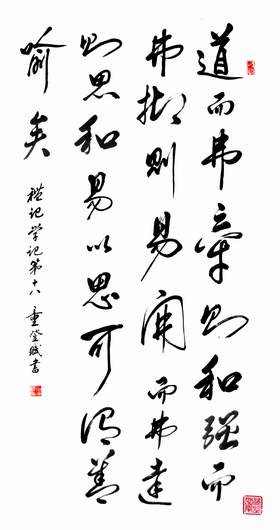 道而弗牵则和强而
弗抑则易开而弗达
则思和易以思可谓善
喻矣
礼记学记第十八 童登书